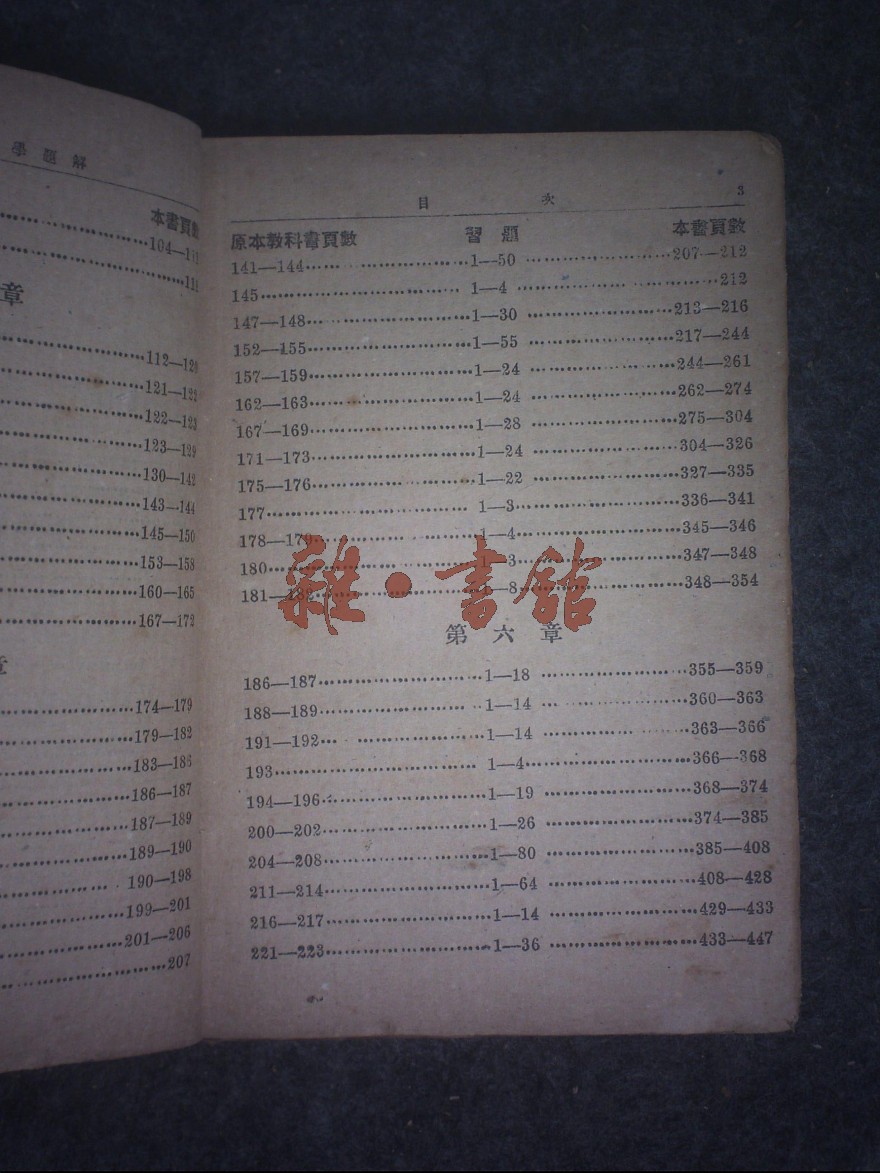 學題解
本書頁數
104—111
111
章
112—120
121—122
122—123
123—129
130—142
143—144
145—150
153—158
160—165
167—172
章
174—179
179—182
183—186
186—187
187—189
189—190
190—198
199—201
201—206
207
目 次 3
原本教科書頁數 習題 本書頁數
141—144 1—50 207—212
145 1—4 212
147—148 1—30 213—216
152—155 1—55 217—244
157—159 1—24 244—261
162—163 1—24 262—274
167—169 1—28 275—304
171—173 1—24 304—326
175—176 1—22 327—335
177 1—3 336—341
178—179 1—4 345—346
180 1—3 347—348
181—182 1—8 348—354
雜·書館
第六章
186—187 1—18 355—359
188—189 1—14 360—363
191—192 1—14 363—366
193 1—4 366—368
194—196 1—19 368—374
200—202 1—26 374—385
204—208 1—80 385—408
211—214 1—64 408—428
216—217 1—14 429—433
221—223 1—36 433—447